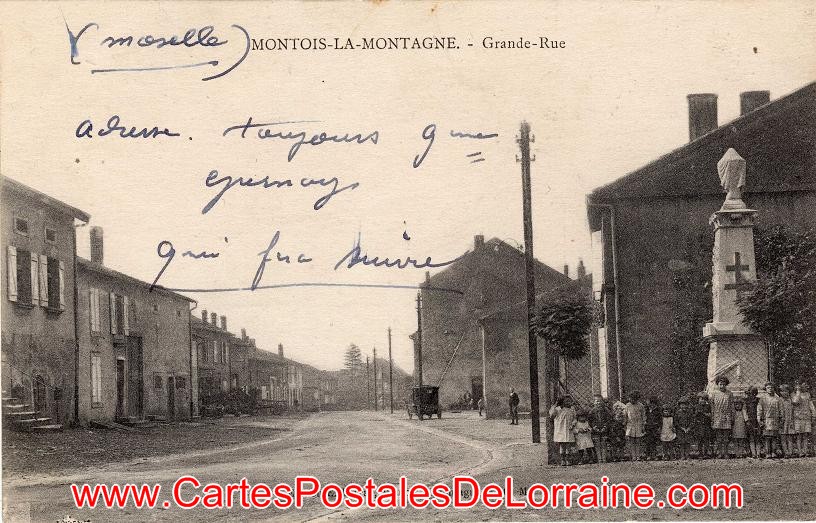 (moselle) MONTOIS-LA-MONTAGNE. - Grande-Rue
adresse. toujours qme
epernay
qui fra suivre
(www.CartesPostalesDeLorraine.com)